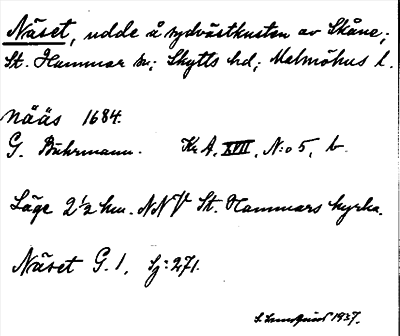 Näset, udde å sydvästkusten av Skåne;
St. Hammar sn; Skytts hd; Malmöhus l.
Nääs 1684.
G. Buhrmann. Kr A, XVII, N:o 5, b.
Läge 2½ km. NNV St. Hammars kyrka.
Näset G. 1, Sj: 271.
S. Lundquist 1937.